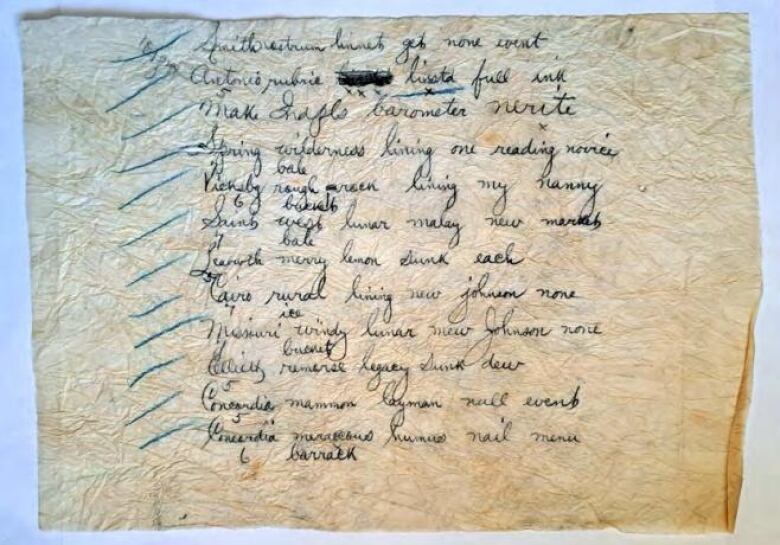 Smith rostrum linnet get none event
Antonio rubric lissta full ink
5
Make Indpls barometer nerite
Spring wilderness lining one reading novice
5 bale
Vicksbg rough rock lining my nanny
6 bucket
Saint west lunar malay new market
7 bale
Leavwth merry lemon sunk each
5
Cairo rural lining new johnson none
7 ice
Missouri windy lunar mew Johnson none
bucket
remorse legacy sunk dew
5
Concordia mammon layman null event
5
Concordia meraceous humus nail menu
6 barrack